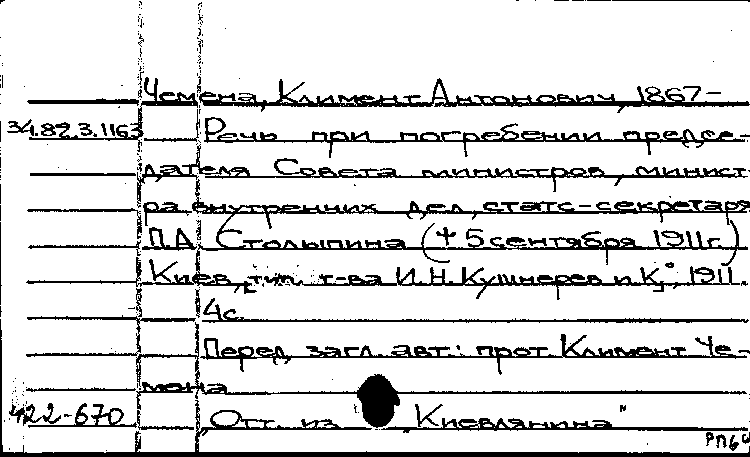 Чемена, Климент Антонович, 1867-
34.82.3.1163 Речь при погребении предсе-
дателя Совета министров, минист-
ра внутренних дел, статс-секретаря
П.А. Столыпина († 5 сентября 1911 г.)
Киев, тип. т-ва И.Н. Кушнерев и К°, 1911.
4 с.
Перед загл. авт.: прот. Климент Че-
мена
422-670 Отт. из "Киевлянина"
РПБ